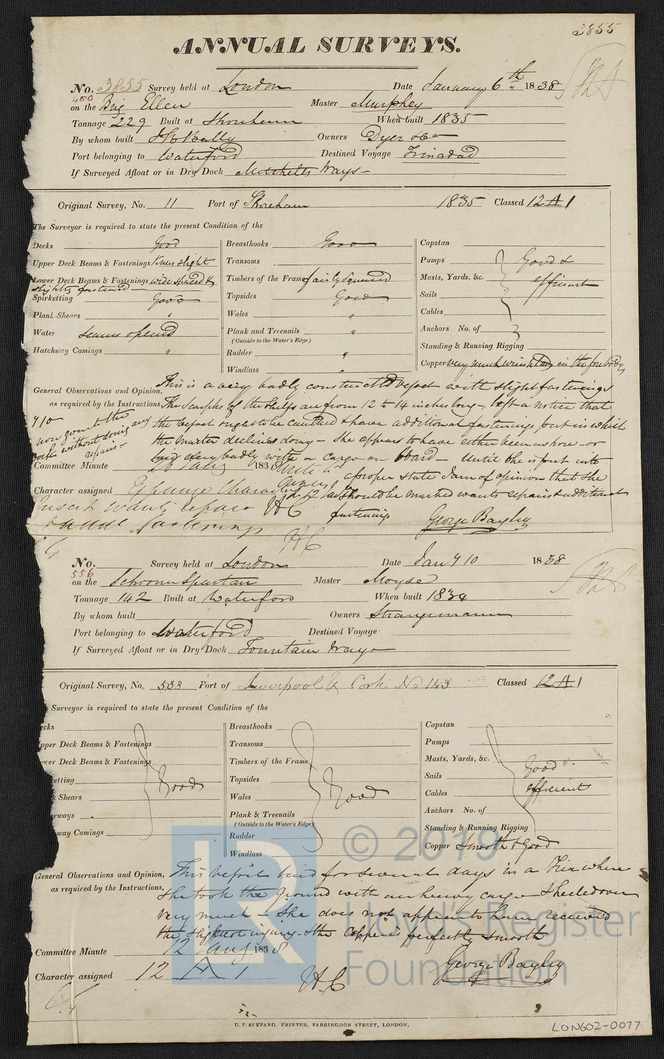 2855
ANNUAL SURVEYS.
No. 3855 Survey held at London Date January 6th 1838
450
on the Brig Ellen Master Murphey
Tonnage 229 Built at Shoreham When built 1835
By whom built Owners Dyer & Co
Port belonging to Waterford Destined Voyage Trinidad
If Surveyed Afloat or in Dry Dock Mitchells Ways
Original Survey, No. 11 Port of Shoreham 1835 Classed 12 A 1
The Surveyor is required to state the present Condition of the
Decks Good
Upper Deck Beams & Fastenings Knees slight
Lower Deck Beams & Fastenings wide spaced &
slightly fastened
Spirketting Good
Plank Shears "
Water seams opened
Hatchway Comings "
Breasthooks Good
Transoms
Timbers of the Frame fairly squared
Topsides Good
Wales "
Plank and Treenails "
(Outside to the Water's Edge)
Rudder "
Windlass "
Capstan
Pumps
Masts, Yards, &c.
Sails
Cables
Anchors No. of 3
Standing & Running Rigging
Good & efficient
Copper very much wrinkled in the
General Observations and Opinion,
as required by the Instructions,
This is a very badly constructed vessel with slight fastenings
The scarphs of the shelfs are from 12 to 14 inches long - left a notice that
the vessel ought to be caulked & have additional fastenings put in which
the Master declines doing - she appears to have either been ashore or
laid very badly with a cargo on board - Until she is put into
a proper state I am of opinion that she
should be marked wants repairs & additional
fastenings George Bayley
now gone to the
without doing any
repairs -
Committee Minute 183
Character assigned Expunge Character
insert wants repair HC
fastenings
HC
No. Survey held at London Date Jany 10 1838
556
on the Schooner Spartan Master Moyse
Tonnage 142 Built at Waterford When built 1834
By whom built Owners Strangemann
Port belonging to Waterford Destined Voyage
If Surveyed Afloat or in Dry Dock Fountain Ways
Original Survey, No. 533 Port of Liverpool & Cork No 143 Classed 12 A 1
Surveyor is required to state the present Condition of the
cks
pper Deck Beams & Fastenings
wer Deck Beams & Fastenings
etting
Shears
rways
way Comings
Good
Breasthooks
Transoms
Timbers of the Frame
Topsides
Wales
Plank & Treenails
(Outside to the Water's Edge)
Rudder
Windlass
Good
Capstan
Pumps
Masts, Yards, &c.
Sails
Cables
Anchors No. of
Standing & Running Rigging
Good & efficient
Copper Smooth & Good
General Observations and Opinion,
as required by the Instructions,
This vessel laid for several days in a Pier where
she took the ground with an heavy cargo & heeled over
very much - she does not appear to have received
the slightest injury. the Copper perfectly smooth
George Bayley
Committee Minute 12 1838
Character assigned 12 A 1 HC
© 2019
LR
Lloyd's Register
Foundation
PRINTER, FARRINGDON STREET, LONDON.
LON602-0077